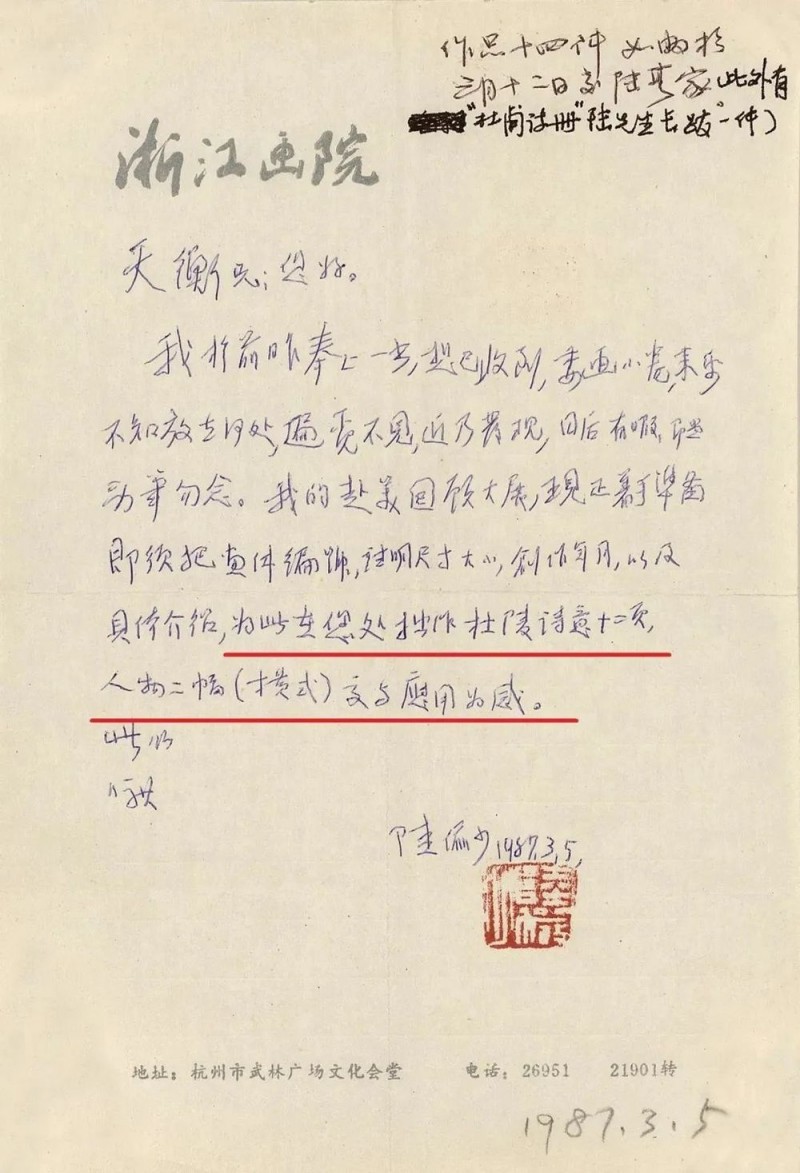 作品十四件 如数于
三月十二日 陆 家 此外有
"杜甫诗册"陆先生长跋 一件）
浙江画院
天衡兄：您好。
我于前昨奉上一书，想已收到，委画小卷，来
不知放在何处，遍觅不见，近乃发现，日后有暇，即
动笔勿念。我的赴美回顾大展，现正着手准备
即须把画件编号，注明尺寸大小，创作年月，以及
具体介绍，为此在您处拙作杜陵诗意十二页，
人物二幅（横式）交与应用为感。
此以
陆俨少 1987.3.5.
地址：杭州市武林广场文化会堂 电话：26951 21901转
1987.3.5